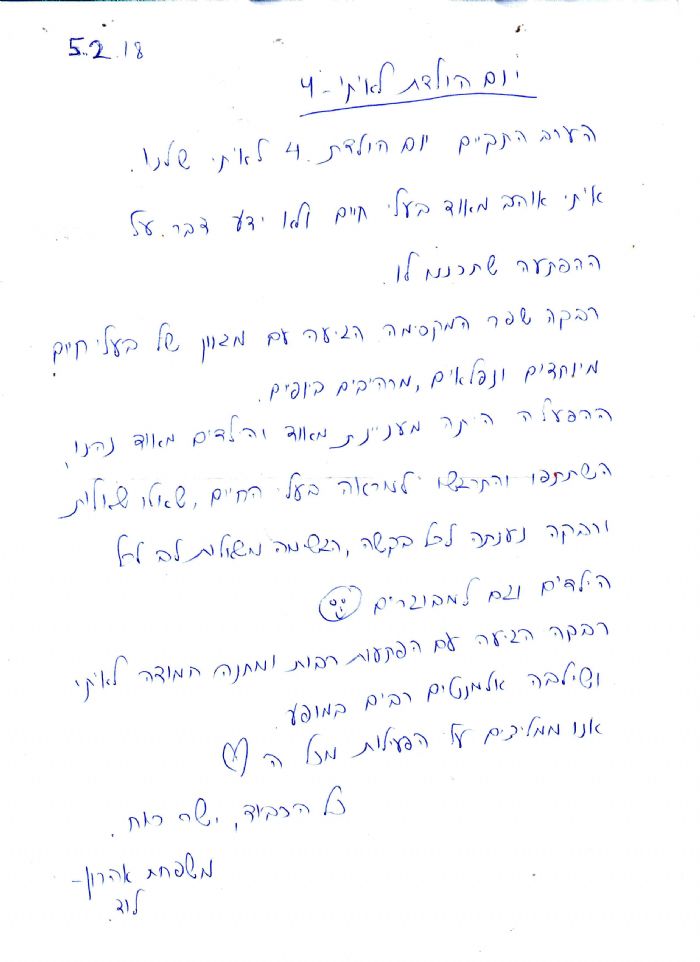 5.2.18
יום הולדת לאיתי - 4
הערב התקיים יום הולדת 4 לאיתי שלנו.
איתי אוהב מאוד בעלי חיים ולא ידע דבר על
ההפתעה שתכננו לו.
רבקה שפר המקסימה הגיעה עם מגוון של בעלי חיים
מיוחדים ונפלאים, מרהיבים ביופים.
ההפעלה היתה מעניינת מאוד והילדים מאוד נהנו,
השתתפו והתרגשו למראה בעלי החיים, שאלו שאלות
ורבקה נענתה לכל בקשה, הגשימה משאלות לב לכל
הילדים וגם למבוגרים
רבקה הגיעה עם הפתעות רבות ומתנה חמודה לאיתי
ושילבה אלמנטים רבים במופע.
אנו ממליצים על הפעילות מכל ה
כל הכבוד, ישר כוח.
משפחת אהרון -
לוד